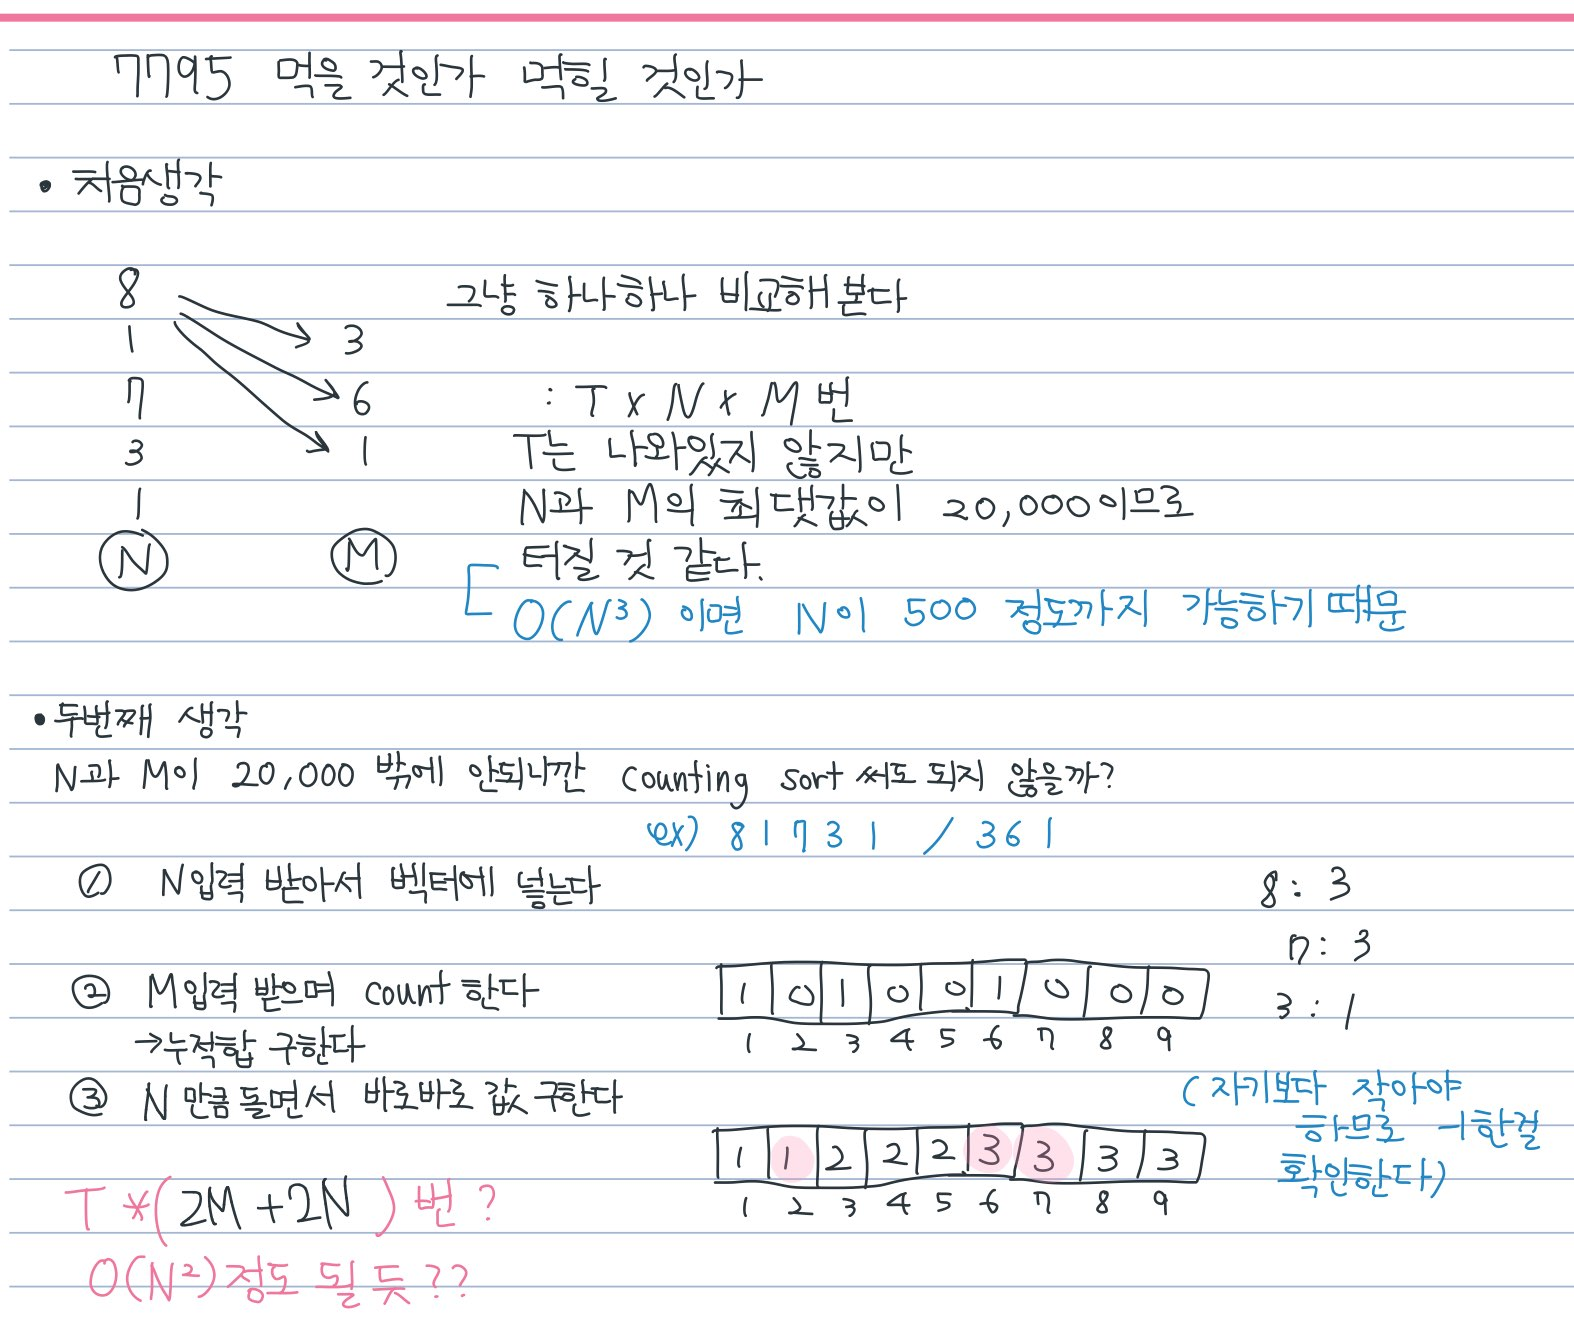 7795 먹을 것인가 먹힐 것인가
• 처음생각
8
그냥 하나하나 비교해 본다
1 3
7 6 : T x N x M 번
3 1 T는 나와있지 않지만
1 N과 M의 최댓값이 20,000이므로
N M 터질 것 같다.
O(N³) 이면 N이 500 정도까지 가능하기 때문
• 두번째 생각
N과 M이 20,000 밖에 안되니깐 counting sort 써도 되지 않을까?
ex) 8 1 7 3 1 / 3 6 1
① N입력 받아서 벡터에 넣는다
8: 3
7: 3
3: 1
② M입력 받으며 count 한다
1 0 1 0 0 1 0 0 0
1 2 3 4 5 6 7 8 9
→누적합 구한다
③ N 만큼 돌면서 바로바로 값 구한다
(자기보다 작아야
하므로 -1한걸
확인한다)
1 1 2 2 2 3 3 3 3
1 2 3 4 5 6 7 8 9
T *(2M+2N) 번?
O(N²)정도 될 듯??